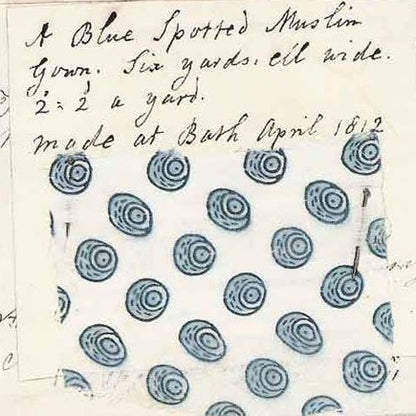 A Blue Spotted Muslin
Gown. Six yards. ell wide.
2 = 2 a yard.
made at Bath April 1812